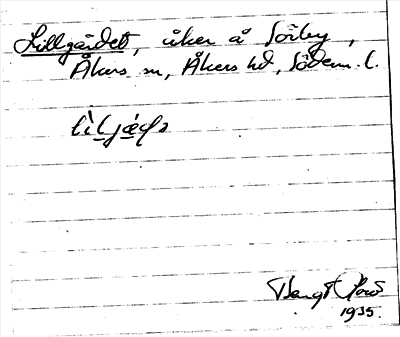 Lillgärdet, åker å Sörby,
Åkers sn, Åkers hd, Södern. l.
Bengt
1935.